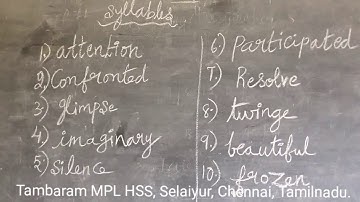 Syllables
1) attention
2) Confronted
3) glimpse
4) imaginary
5) Silence
6) Participated
7) Resolve
8) twinge
9) beautiful
10) frozen
Tambaram MPL HSS, Selaiyur, Chennai, Tamilnadu.